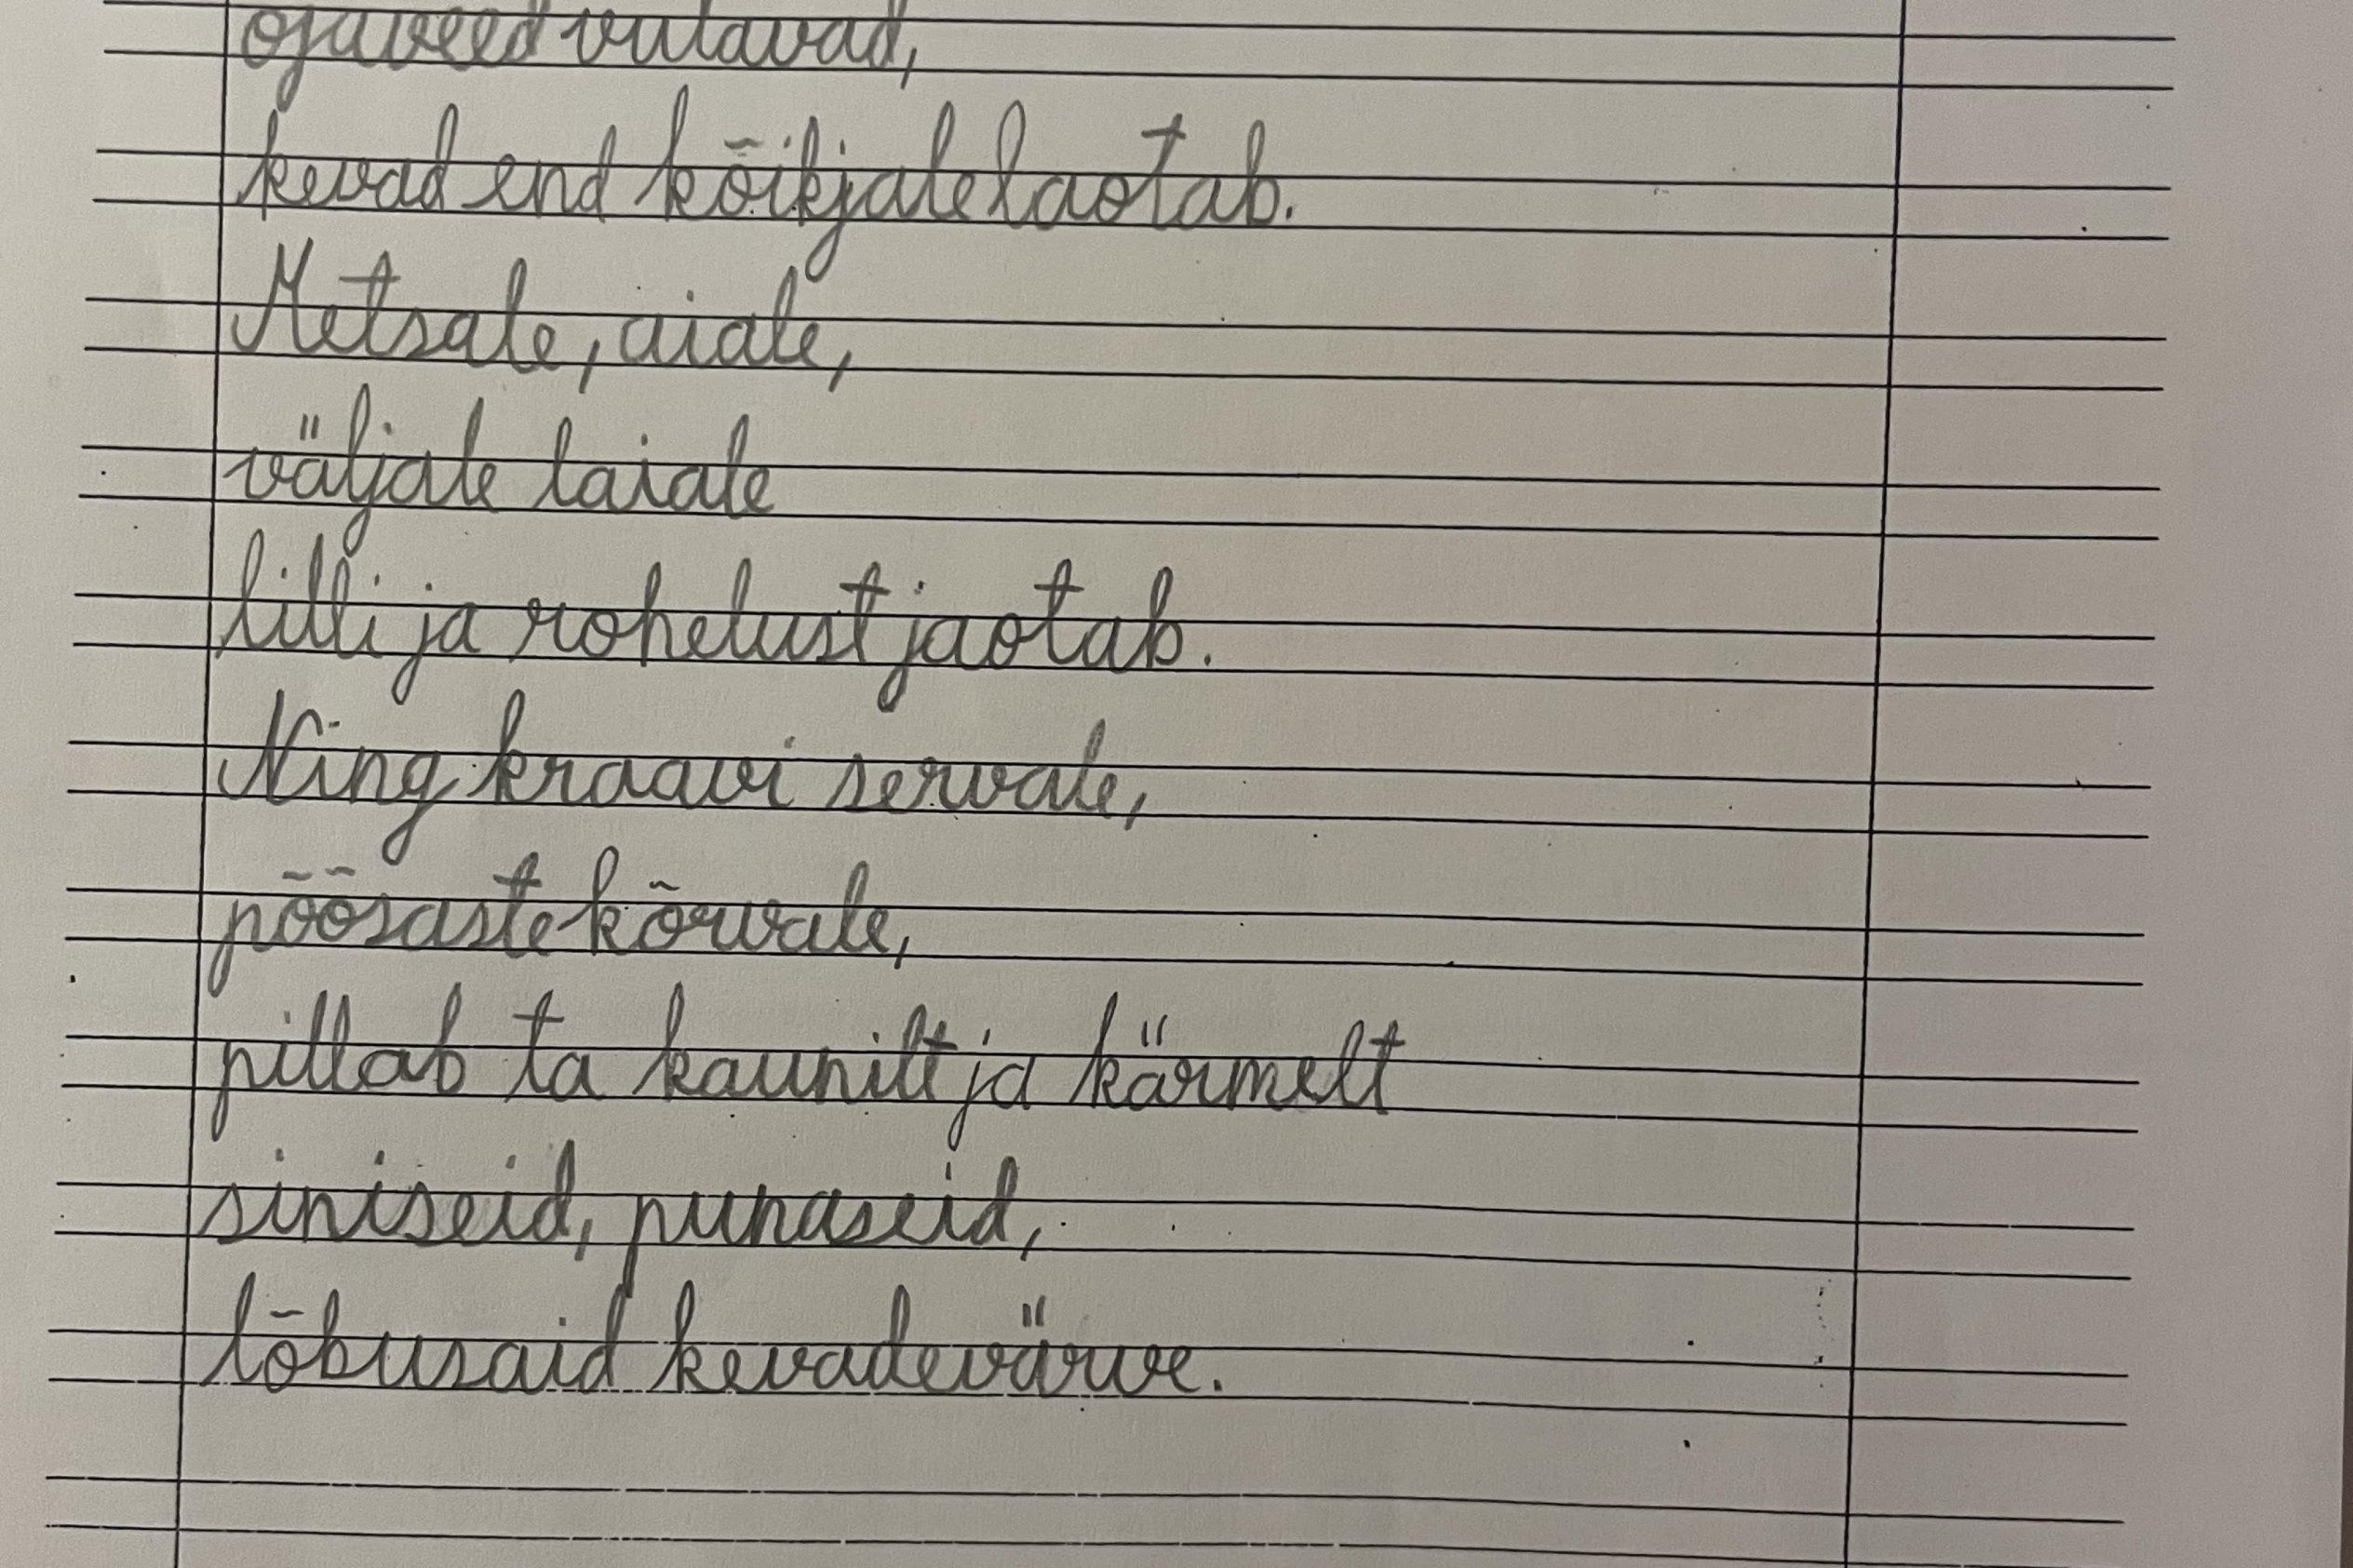 ojaveed vulavad,
kevad end kõikjale laotab.
Metsale, aiale,
väljale laiale
lilli ja rohelust jaotab.
Ning kraavi servale,
põõsaste kõrvale,
pillab ta kaunilt ja kärmelt
siniseid, punaseid,
lõbusaid kevadevärve.